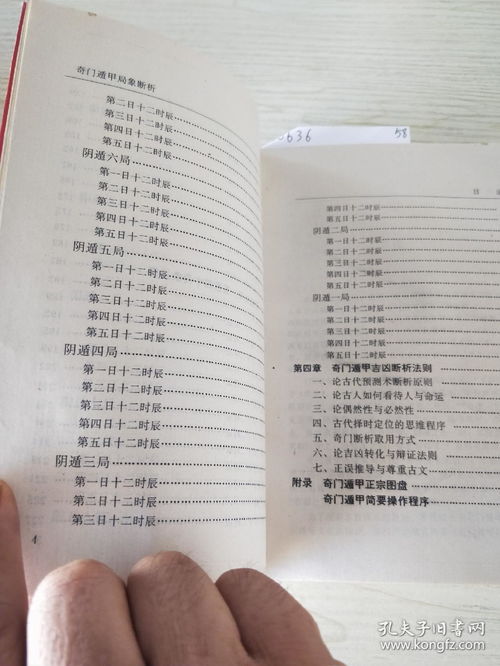 奇门遁甲局象断析
第二日十二时辰
第三日十二时辰
第四日十二时辰
第五日十二时辰
阴遁六局
第一日十二时辰
第二日十二时辰
第三日十二时辰
第四日十二时辰
第五日十二时辰
阴遁五局
第一日十二时辰
第二日十二时辰
第三日十二时辰
第四日十二时辰
第五日十二时辰
阴遁四局
第一日十二时辰
第二日十二时辰
第三日十二时辰
第四日十二时辰
第五日十二时辰
阴遁三局
第一日十二时辰
第二日十二时辰
第三日十二时辰
4
636 58
目
第四日十二时辰
第五日十二时辰
阴遁二局
第一日十二时辰
第二日十二时辰
第三日十二时辰
第四日十二时辰
第五日十二时辰
阴遁一局
第一日十二时辰
第二日十二时辰
第三日十二时辰
第四日十二时辰
第五日十二时辰
第四章 奇门遁甲吉凶断析法则
一、论古代预测术断析原则
二、论古人如何看待人与命运
三、论偶然性与必然性
四、古代择时定位的思维程序
五、奇门断析取用方式
六、论吉凶转化与辩证法则
七、正误推导与尊重古文
附录 奇门遁甲正宗图盘
奇门遁甲简要操作程序
孔夫子旧书网
www.kongfz.com